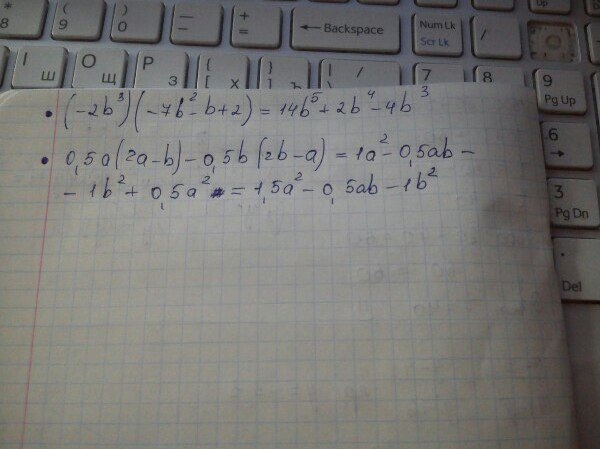 * 8 ( 9 ) 0 — – + = ← Backspace Num Lk Scr Lk /
I Ш O Щ P З { [ Х } ] Ъ | \ / 7 8 9 Pg Up
6 →
3 Pg Dn
. Del
• (-2b³)(-7b²-b+2)=14b⁵+2b⁴-4b³
• 0,5a(2a-b)-0,5b(2b-a)=1a²-0,5ab-
-1b²+0,5a²=1,5a²-0,5ab-1b²